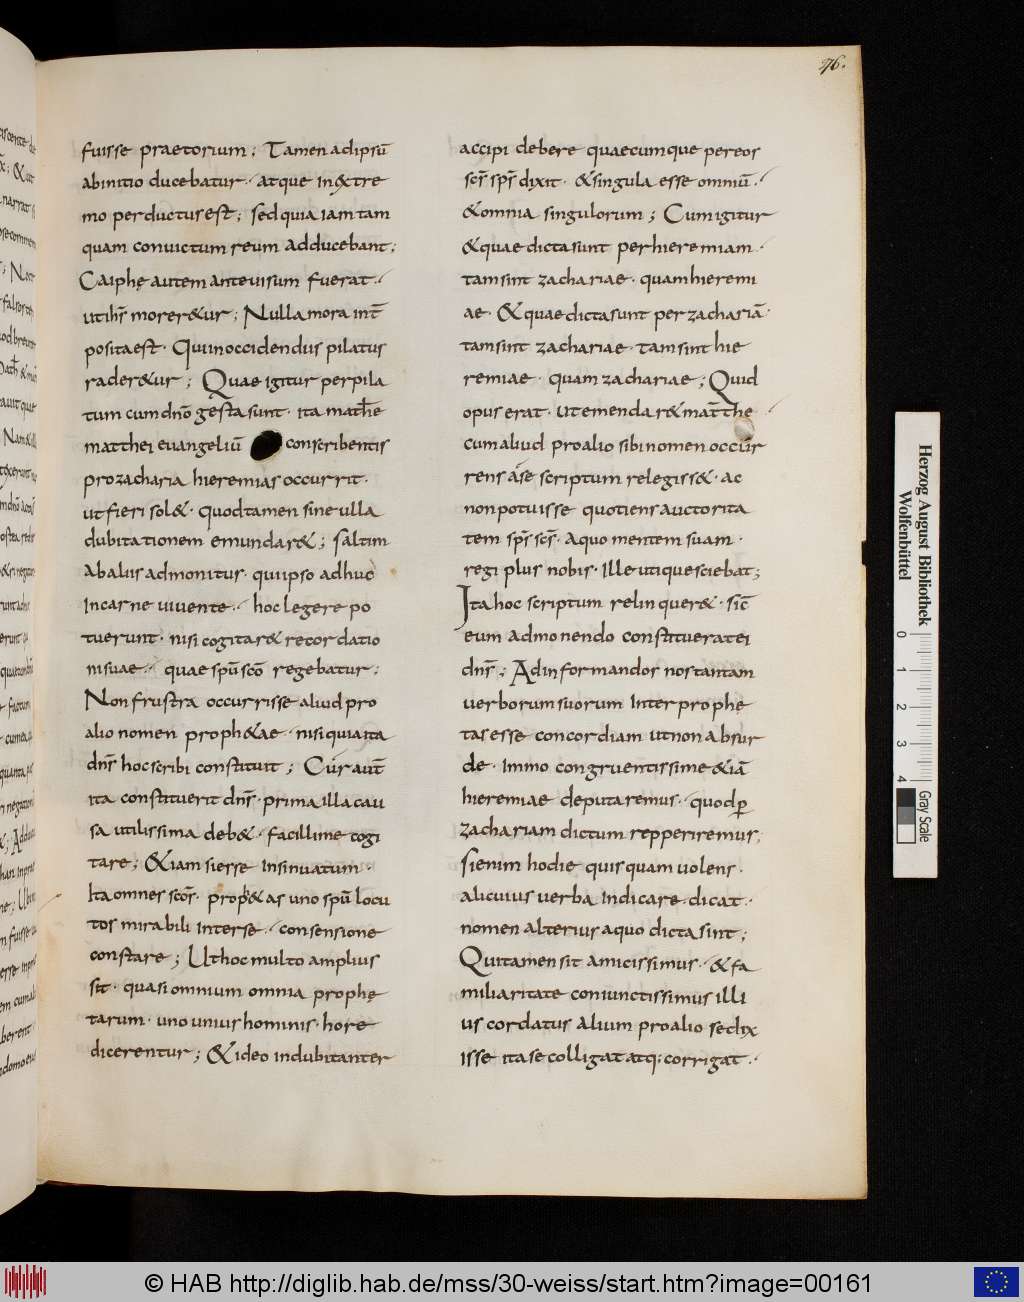 76.
fuisse praetorium; Tamen adipsū
abinitio ducebatur· atque in&tre
mo perductus est; sed quia iam tam
quam convictum reum adducebant;
Caiphę autem ante visum fuerat·
utihs̄ morer&ur; Nulla mora int̄
posita est· Quin occidendus pilatus
rader&ur; Quae igitur per pila
tum cum dn̄o gesta sunt· ita math̄e
matthei euangeliū conscribentis
pro zacharia hieremias occurrit·
ut fieri sol&· quod tamen sine ulla
dubitatione emundar&; saltim
ab aliis admonitus· qui ipso adhuc
in carne vivente· hoc legere po
tuerunt· nisi cogitar& recordatio
ni suae· quae sp̄u sc̄o regebatur;
Non frustra occurrisse aliud pro
alio nomen proph&ae· nisi quia ita
dn̄s hoc scribi constituit; Cur aut̄
ita constituerit dn̄s· prima illa cau
sa utilissima deb&· facillime cogi
tare; &iam sic esse insinuatum·
Ita omnes scōs· proph&as uno sp̄u locu
tos mirabili inter se· consensione
constare; Ut hoc multo amplius
sit· quasi omnium omnia prophe
tarum· uno unius hominis· hore
dicerentur; & ideo indubitanter
accipi debere quaecumque per eos
sc̄s sp̄s dixit· & singula esse omniū·
& omnia singulorum; Cum igitur
& quae dicta sunt per hieremiam·
tam sint zachariae· quam hieremi
ae· & quae dicta sunt per zachariā·
tam sint zachariae· tam sint hie
remiae· quam zachariae; Quid
opus erat· ut emendar& matthe
cum aliud pro alio sibi nomen occur
rens a se scriptum relegiss&· ac
non potuisse quotiens auctorita
tem sp̄s sc̄s· a quo mentem suam·
regi plus nobis· ille utique sciebat;
Ita hoc scriptum relinquer&· sic̄
eum admonendo constituerat ei
dn̄s; Ad informandos nos tantam
verborum suorum inter prophe
tas esse concordiam ut non absur
de· immo congruentissime &iā
hieremiae deputaremus· quod p̄
zachariam dictum repperiremus;
Si enim hodie quisquam volens·
alicuius verba indicare· dicat·
nomen alterius a quo dicta sint;
Qui tamen sit amicissimus· & fa
miliaritate coniunctissimus illi
us cordatus alium pro alio se dix
isse ita se colligat atq; corrigat·
Herzog August Bibliothek
Wolfenbüttel
0 1 2 3 4
Gray Scale
© HAB http://diglib.hab.de/mss/30-weiss/start.htm?image=00161